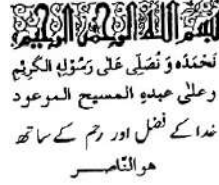 بسم الله الرحمن الرحيم
نَحْمَدُہ وَ نُصَلِّی عَلٰی رَسُوْلِہِ الْکَرِیْم
وعلٰی عبدہِ المسیح الموعود
خدا کے فضل اور رحم کے ساتھ
ھوالنّاصر